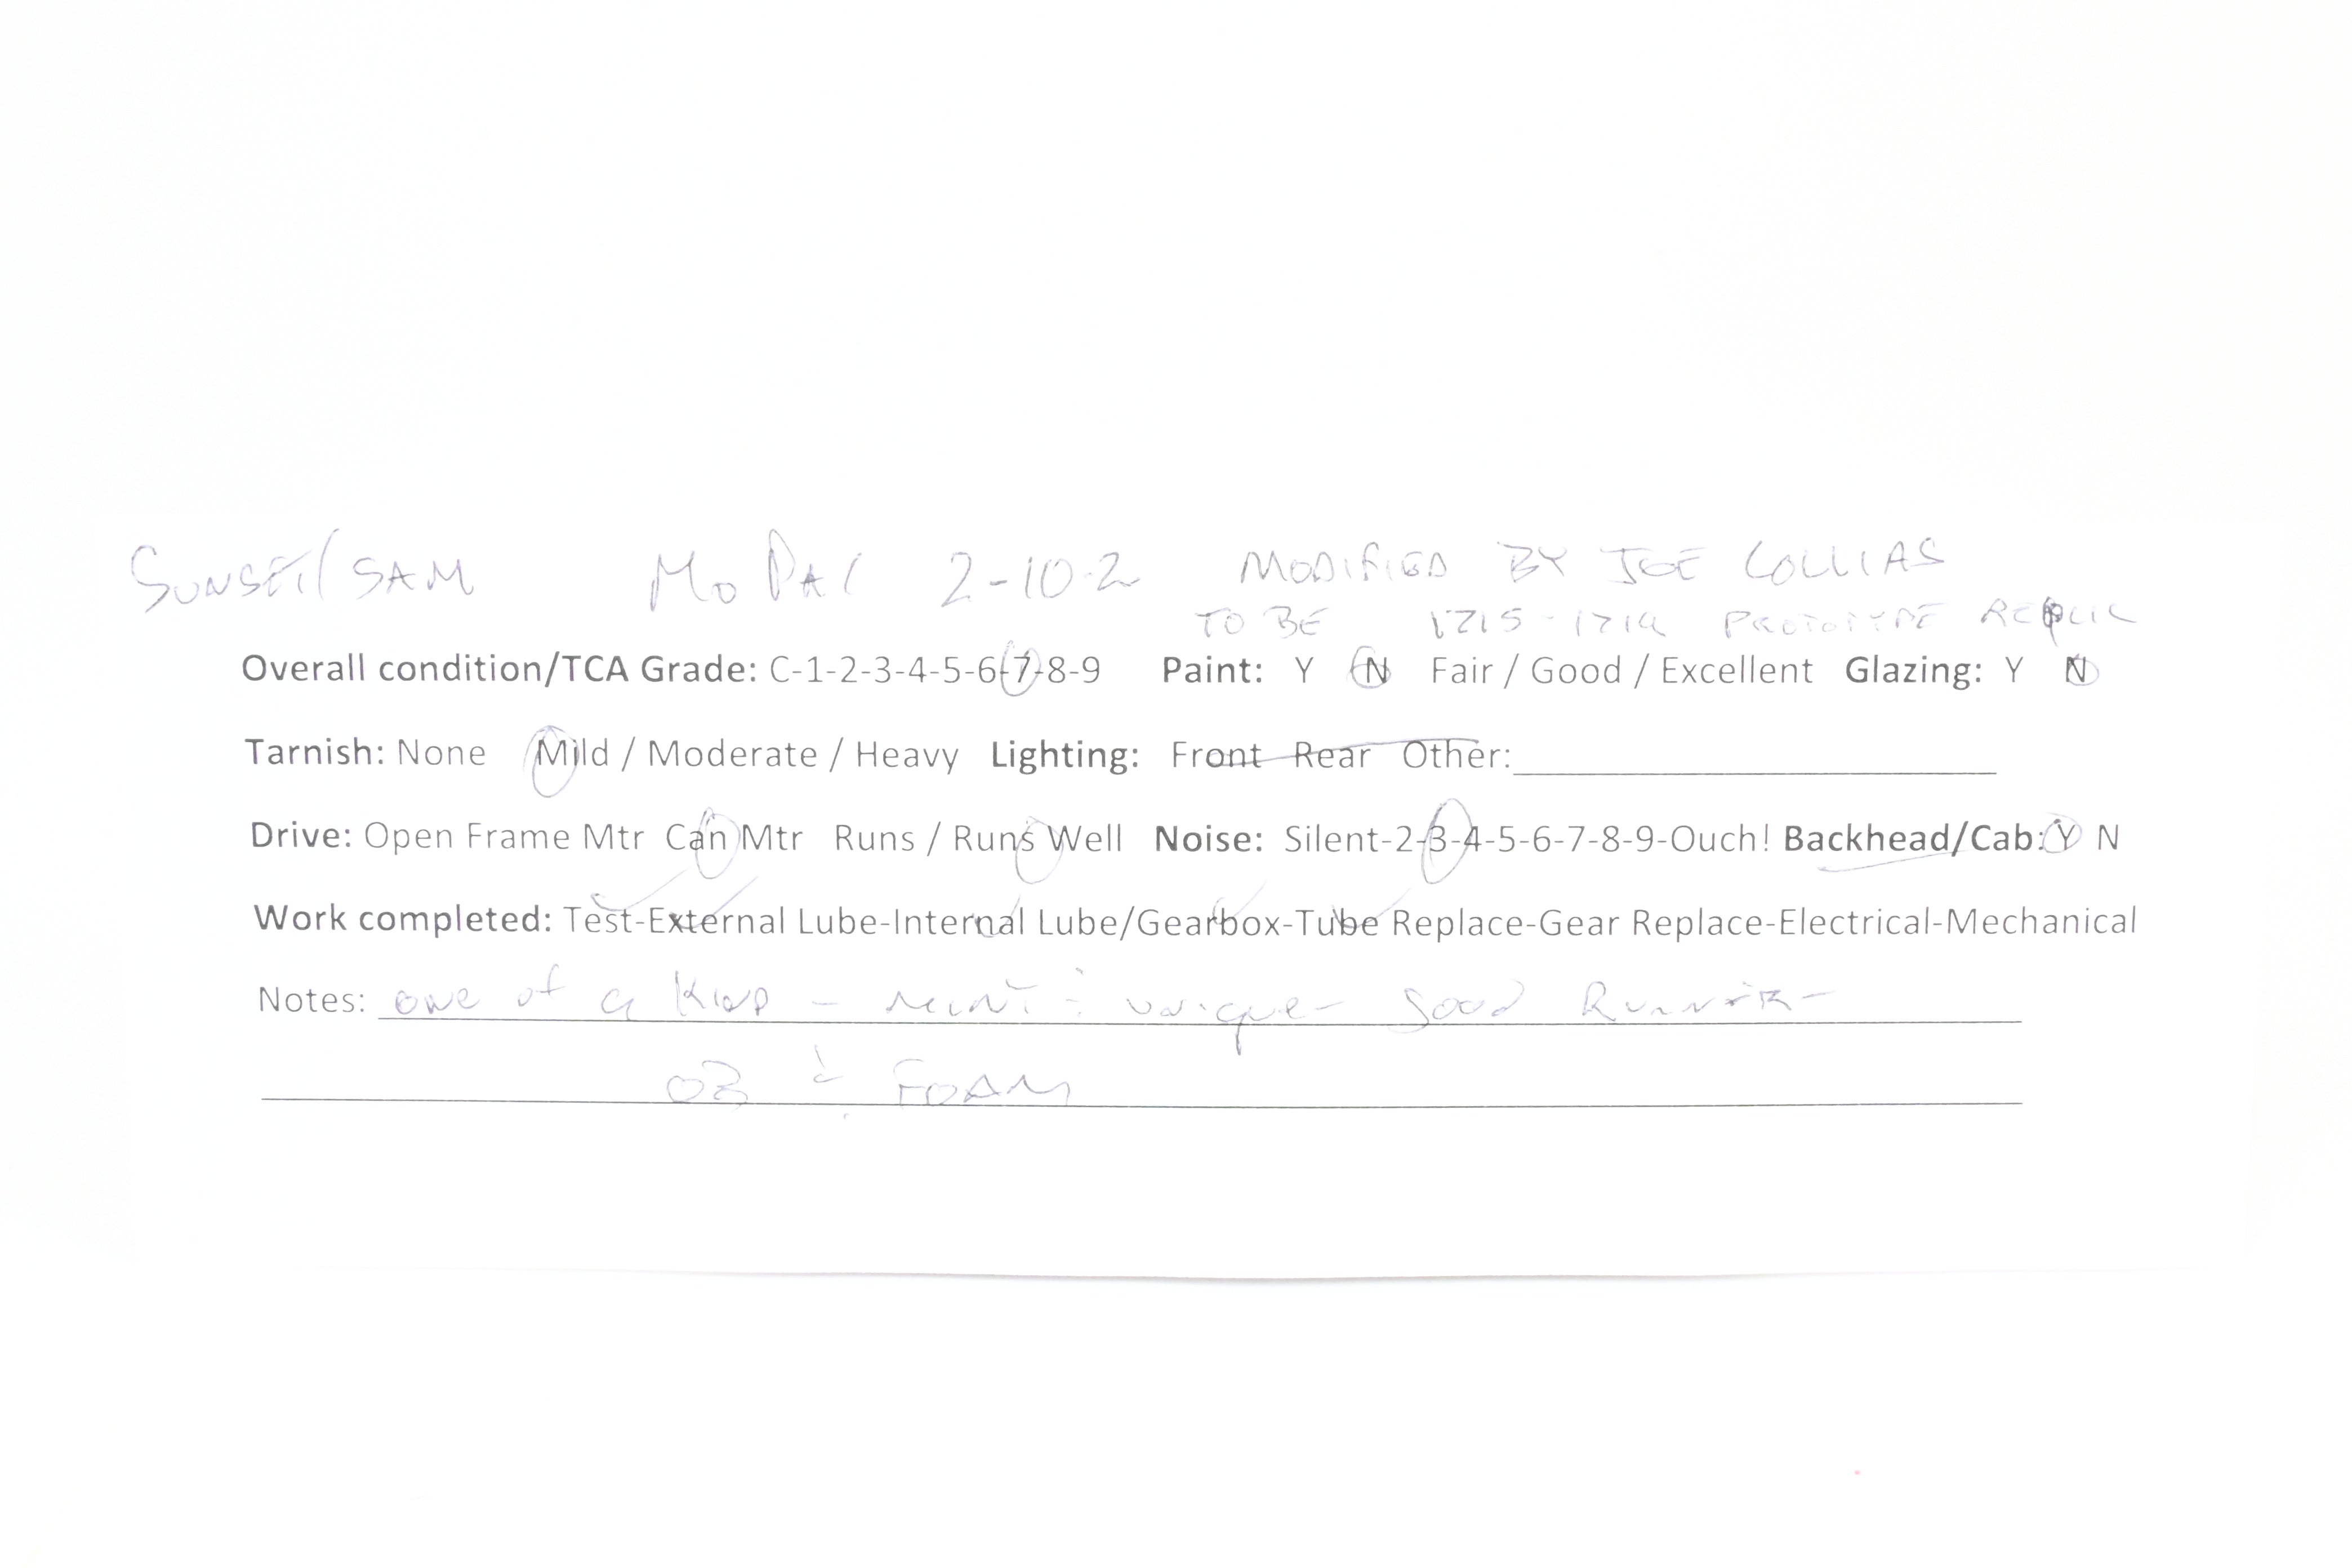 SUNSET/SAM MoPAC 2-10-2 MODIFIED BY JOE COLLIAS
TO BE 1715-1719 PROTOTYPE
Overall condition/TCA Grade: C-1-2-3-4-5-6-7-8-9 Paint: Y N Fair / Good / Excellent Glazing: Y N
Tarnish: None Mild / Moderate / Heavy Lighting: Front Rear Other:
Drive: Open Frame Mtr Can Mtr Runs / Runs Well Noise: Silent-2-3-4-5-6-7-8-9-Ouch! Backhead/Cab: Y N
Work completed: Test-External Lube-Internal Lube/Gearbox-Tube Replace-Gear Replace-Electrical-Mechanical
Notes: one of a KIND - MINT & unique - good Runner -
OB & FOAM